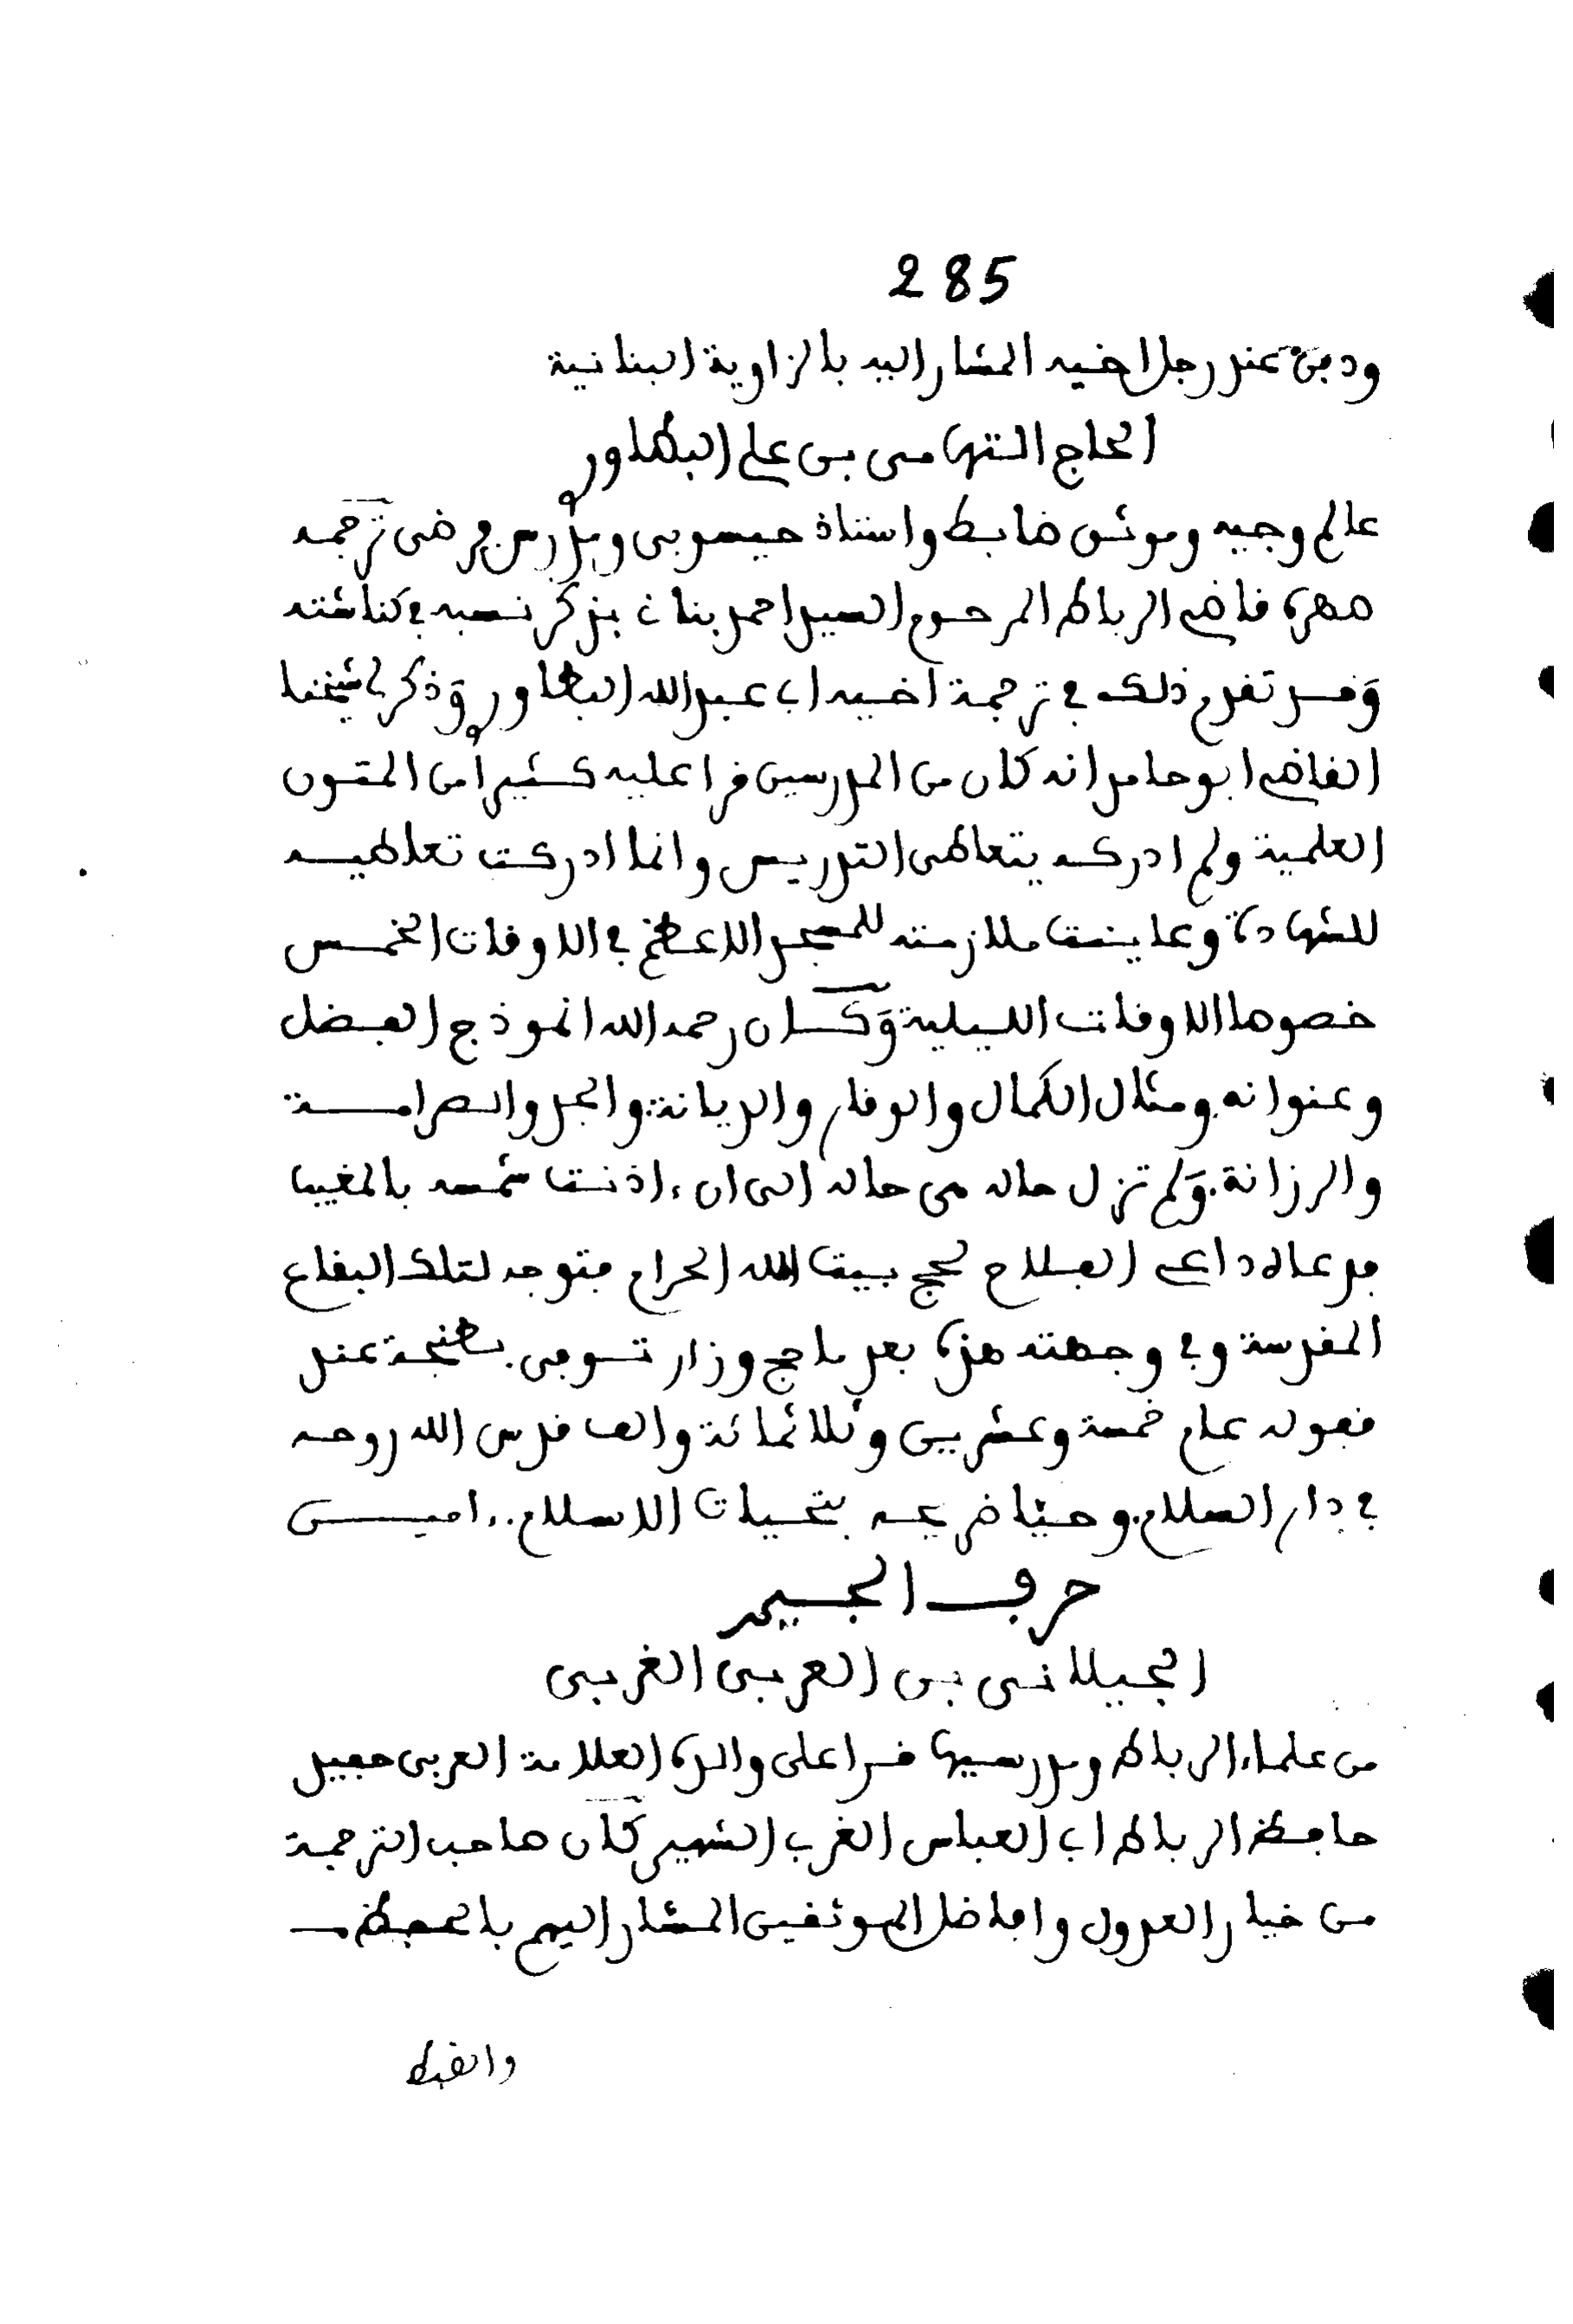 285
ودفن عند رجل اخيه المشار اليه بالزاوية البنانية
الحاج التهامي بن علي البطاوري
عالم وجيه وموثق ضابط واستاذ حيسوبي ومدرس فرضي ترجمه
صهره قاضي الرباط المرحوم السيد احمد بناني بذكر نسبه في كناشته
وقد تقدم ذلك في ترجمة اخيه ابي عبد الله البطاوري وذكر لي شيخنا
القاضي ابو حامد انه كان من المدرسين قرا عليه كثيرا من المتون
العلمية ولم ادركه يتعاطى التدريس وانما ادركت تعاطيه
للشهادة وعاينت ملازمته للمسجد الاعظم في الاوقات الخمس
خصوصا الاوقات الليلية وكان رحمه الله انموذج الفضل
وعنوانه. ومثال الكمال والوقار والديانة. والجد والصرامة
والرزانة. ولم تزل حاله هي حاله الى ان ءاذنت شمسه بالمغيب
فدعاه داعي الفلاح لحج بيت الله الحرام فتوجه لتلك البقاع
المقدسة وفي وجهته هذه بعد ما حج وزار توفي بطنجة عند
قفوله عام خمسة وعشرين وثلاثمائة والف قدس الله روحه
في دار السلام. وحيا ضريحه بتحيات الاسلام.. ءامين
حرف الجيم
الجيلاني بن العربي الغربي
من علماء الرباط ومدرسيها قرا على والده العلامة العربي حفيد
حافظ الرباط ابي العباس الغربي الشهير كان صاحب الترجمة
من خيار العدول وافاضل الموثقين المشار اليهم بالحفظ
والضبط